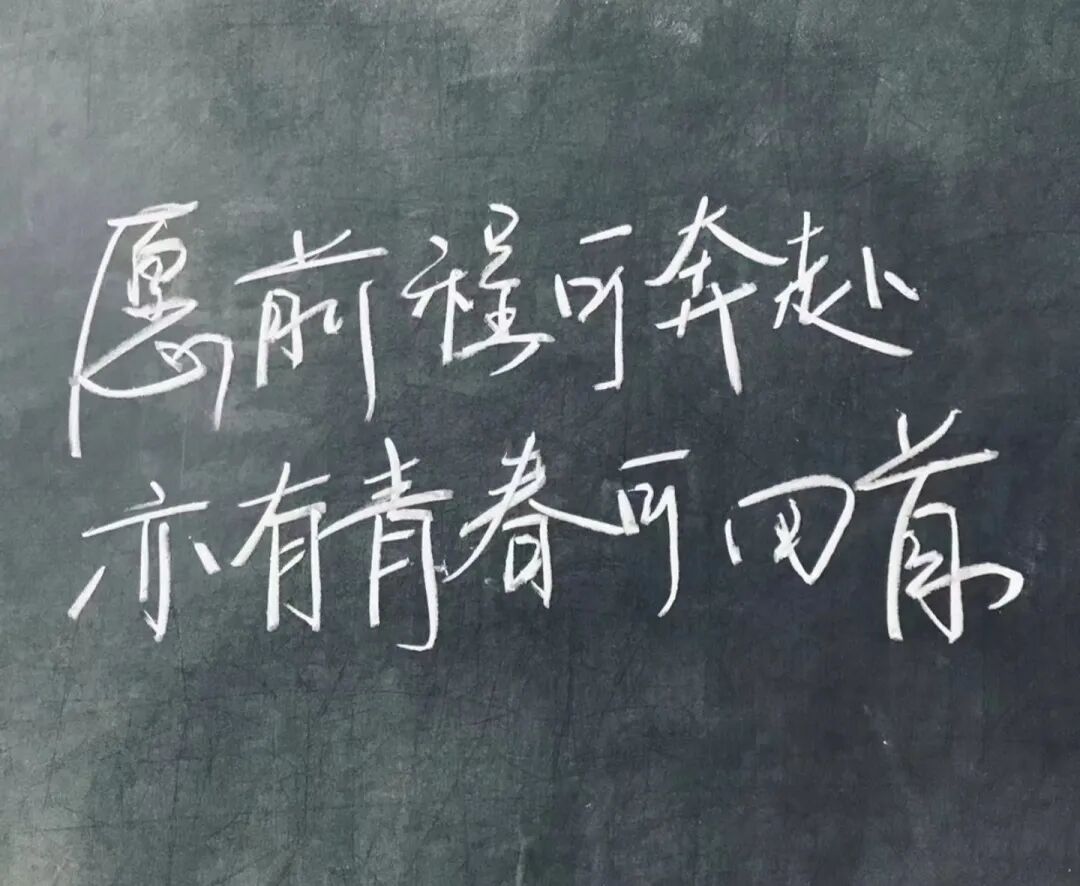 愿前程可奔赴
亦有青春可回首